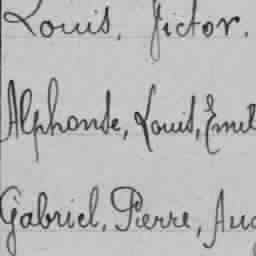 Louis, Victor.
Alphonse, Louis, Emil
Gabriel, Pierre, Aug